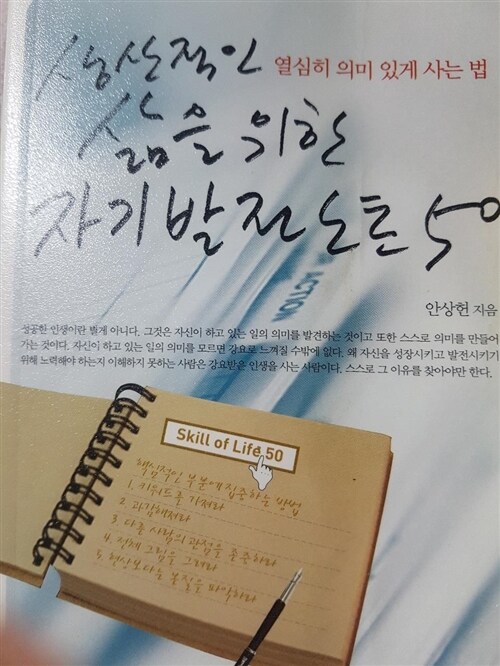 생산적인
열심히 의미 있게 사는 법
삶을 위한
자기발전노트 50
ACTION
안상헌 지음
성공한 인생이란 별게 아니다. 그것은 자신이 하고 있는 일의 의미를 발견하는 것이고 또한 스스로 의미를 만들어
가는 것이다. 자신이 하고 있는 일의 의미를 모르면 강요로 느껴질 수밖에 없다. 왜 자신을 성장시키고 발전시키기
위해 노력해야 하는지 이해하지 못하는 사람은 강요받은 인생을 사는 사람이다. 스스로 그 이유를 찾아야만 한다.
Skill of Life 50
핵심적인 부분에 집중하는 방법
1. 키워드를 가져라
2. 과감해져라
3. 다른 사람의 관점을 존중하라
4. 전체 그림을 그려라
5. 현상보다는 본질을 파악하라